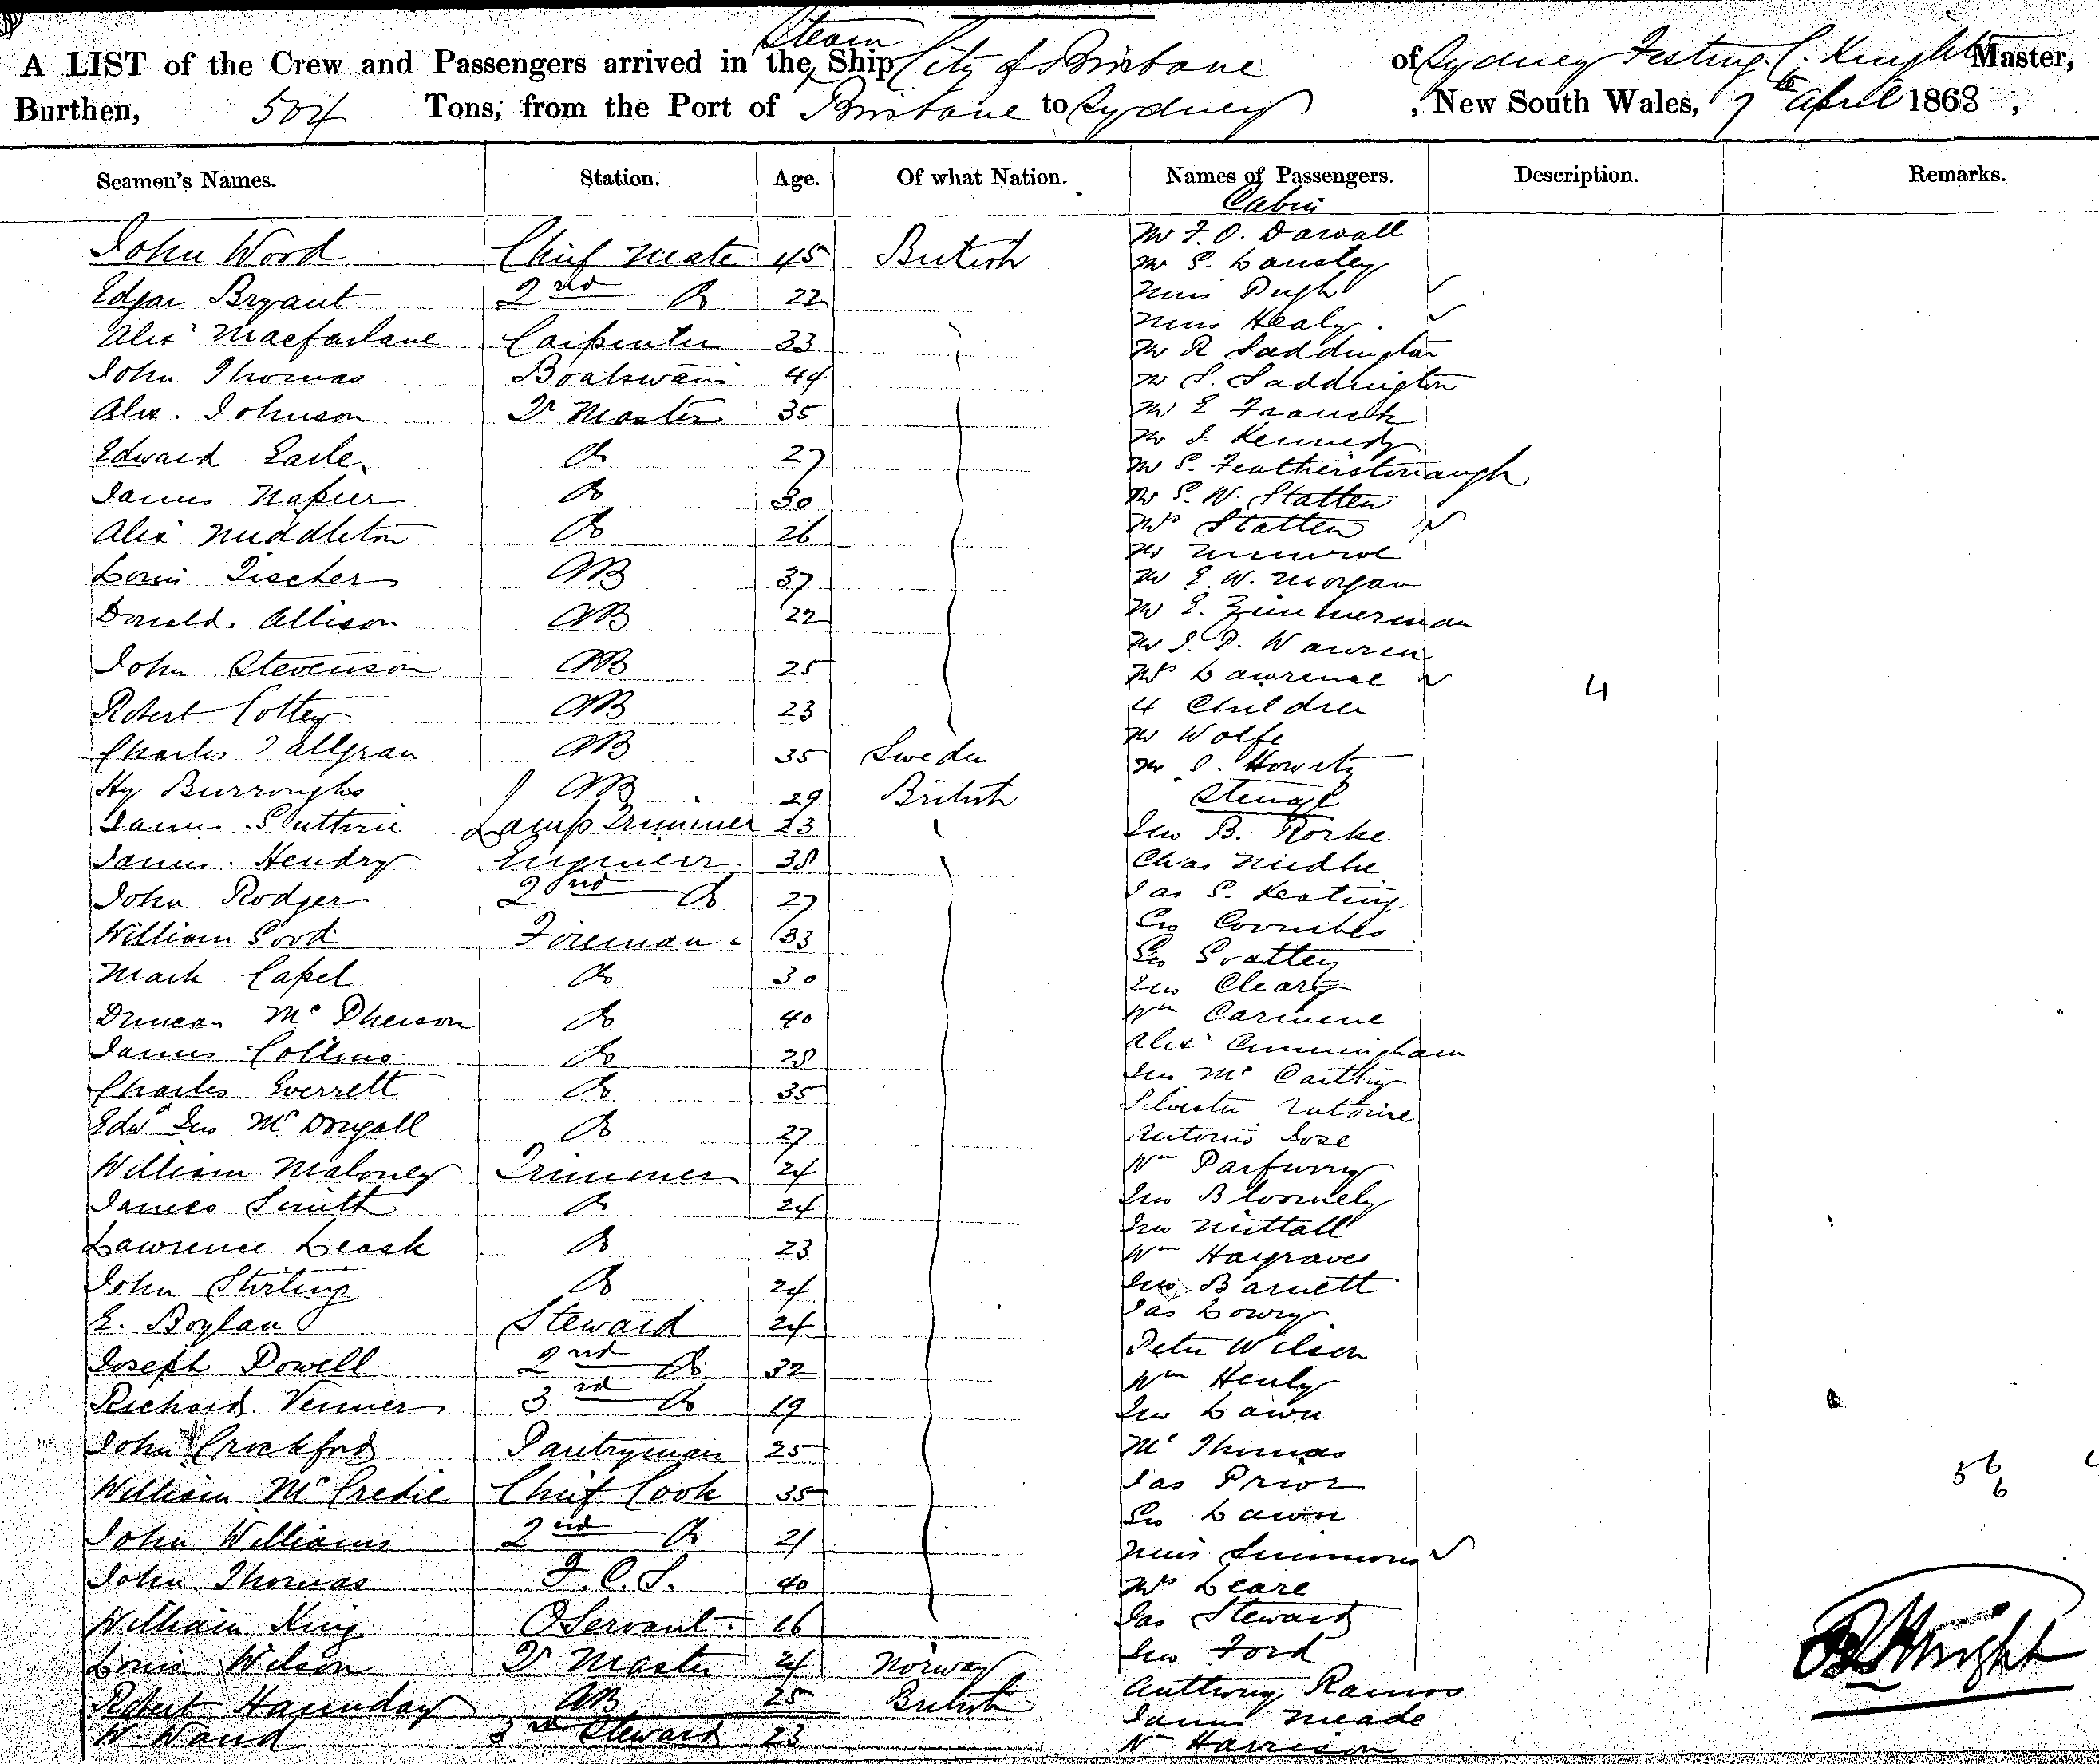 Steam
A LIST of the Crew and Passengers arrived in the Ship City of Brisbane of Sydney Festing C. Knight Master,
Burthen, 504 Tons, from the Port of Brisbane to Sydney , New South Wales, 7th April 1868 ,
Seamen's Names. Station. Age. Of what Nation. Names of Passengers. Description. Remarks.
Cabin
John Wood Chief Mate 45 British Mr F. O. Darvall
Mr S. Lansley
Edgar Bryant 2nd Do 22 Miss Pugh ✓
Miss Healy ✓
Alexr Macfarlane Carpenter 33 Mr R Saddington
John Thomas Boatswain 44 Mr S. Saddington
Alex. Johnson Qr Master 35 Mr E Franck
Mr J. Kennedy
Edward Earle Do 27 Mr S. Featherstonaugh
James Napier Do 30 Mr S. W. Statten
Alexr Middleton Do 26 Mrs Statten ✓
Mr Munroe
Louis Fischer AB 37 Mr E. W. Morgan
Donald Allison AB 22 Mr E. Zimmerman
Mr J. P. Warren
John Stevenson AB 25 Mrs Lawrence ✓ 4
Robert Cottey AB 23 4 Children
Mr Wolfe
Charles Tallgran AB 35 Sweden Mr J. Howitz
Hy Burroughs AB 29 British Steerage
James Guthrie Lamp Trimmer 23 Jno B. Rorke
James Hendry Engineer 38 Chas
John Rodger 2nd Do 27 Jas S. Keating
William Good Fireman 33 Geo Coombes
Geo Grattey
Mark Capel Do 30 Jno Cleary
Duncan McPherson Do 40 Wm Carmene
James Collins Do 28 Alexr Cunningham
Charles Everrett Do 35 Jno McCarthy
Silvester Antoine
Edwd Jno McDougall Do 27 Antonio Jose
William Maloney Trimmer 24 Wm Parfurry
James Smith Do 24 Jno Bloomely
Jno Nuttall
Lawrence Leask Do 23 Wm Hargraves
John Stirling Do 24 Jno Barnett
E. Boylan Steward 24 Jas Lowry
Peter Wilson
Joseph Powell 2nd Do 32 Wm Henly
Richard Venner 3rd Do 19 Jno Lawn
John Crockford Pantryman 25 Mc Thomas
William McCredie Chief Cook 35 Jas Prior 56
6
Geo Lawn
John Williams 2nd Do 21 Miss Simmons ✓
John Thomas F. C. S. 40 Mrs Leare
William King O Servant 16 Jas Steward
Louis Wilson Qr Master 24 Norway Jno Ford
Knight
Robert Haunday AB 25 British Anthony Ramos
James Meade
W. Wand 3rd Steward 23 Wm Harrison